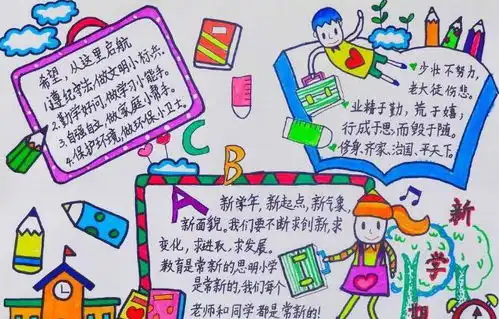 希望，从这里启航
1.遵纪守法，做文明小标兵。
2.勤学好问，做学习小能手。
3.自强自立，做家庭小帮手。
4.保护环境，做环保小卫士。
少壮不努力，
老大徒伤悲。
业精于勤，荒于嬉；
行成于思，而毁于随。
修身、齐家、治国、平天下。
A
B
C
新学年，新起点，新气象，
新面貌，我们要不断求创新，求
变化，求进取，求发展。
教育是常新的，思明小学
是常新的，我们每个
老师和同学都是常新的！
新
学
期